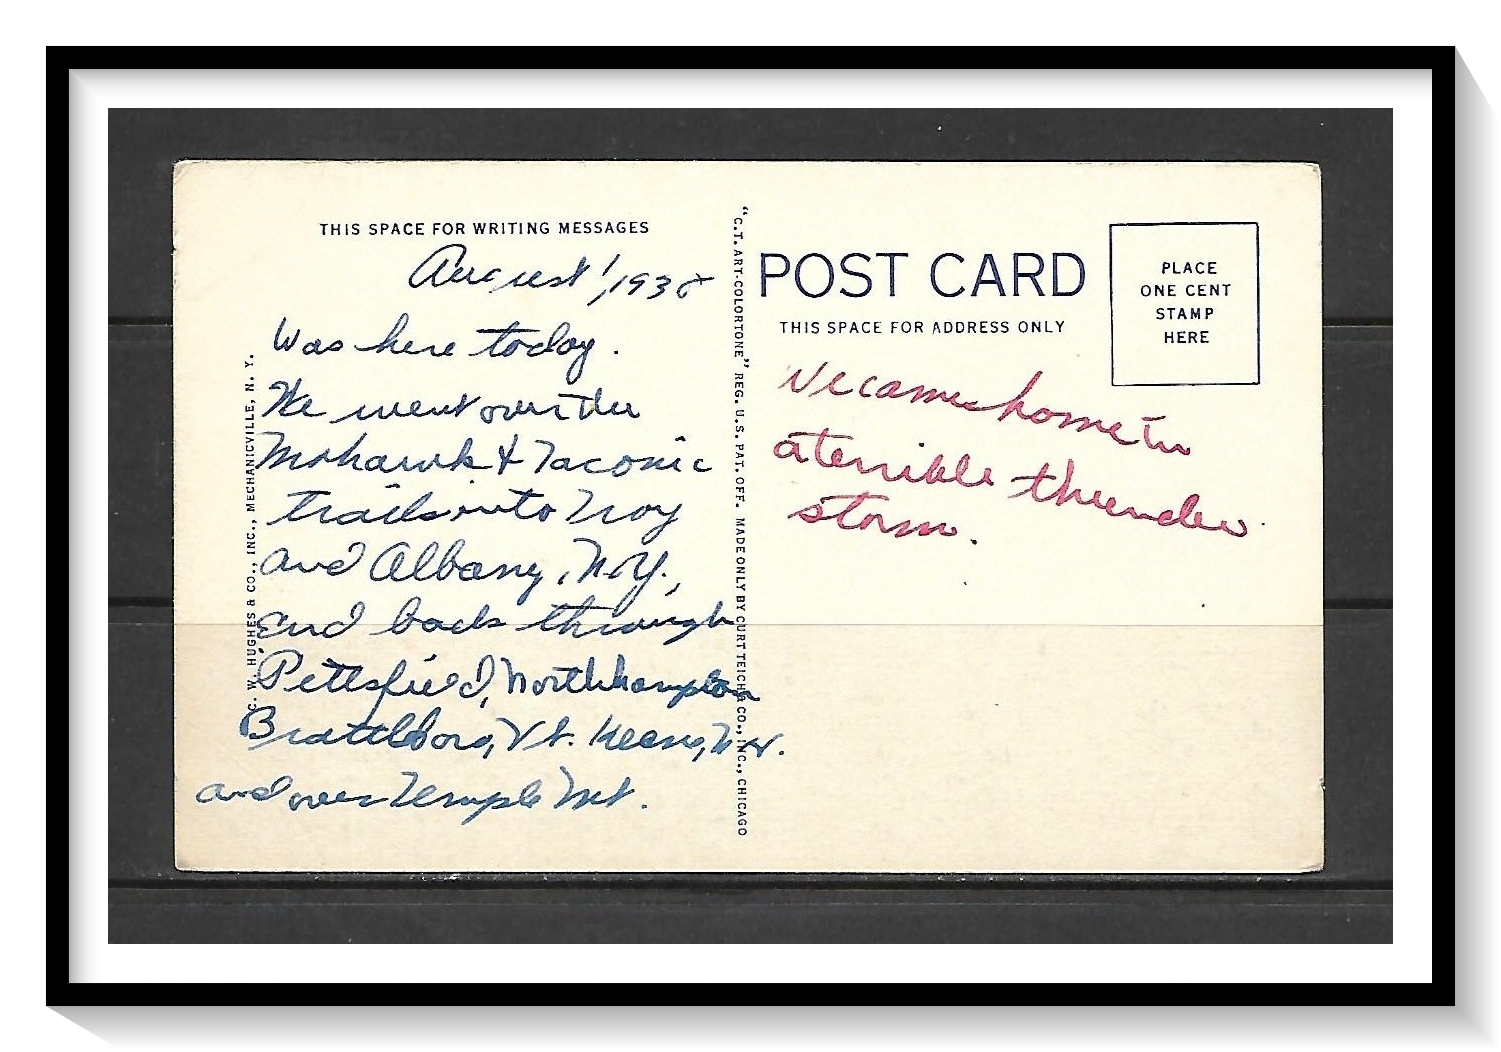 THIS SPACE FOR WRITING MESSAGES
August 1, 1938
Was here today.
We went over the
Mohawk & Taconic
trails into Troy
and Albany, N.Y.,
and back through
Pittsfield, Northhampton
Brattlboro, Vt. Keene, N.H.
and over Temple Mt.
C. W. HUGHES & CO., INC., MECHANICVILLE, N. Y.
"C.T. ART-COLORTONE" REG. U.S. PAT. OFF. MADE ONLY BY CURT TEICH & CO., INC., CHICAGO
POST CARD
THIS SPACE FOR ADDRESS ONLY
PLACE
ONE CENT
STAMP
HERE
We came home in
a terrible thunder
storm.